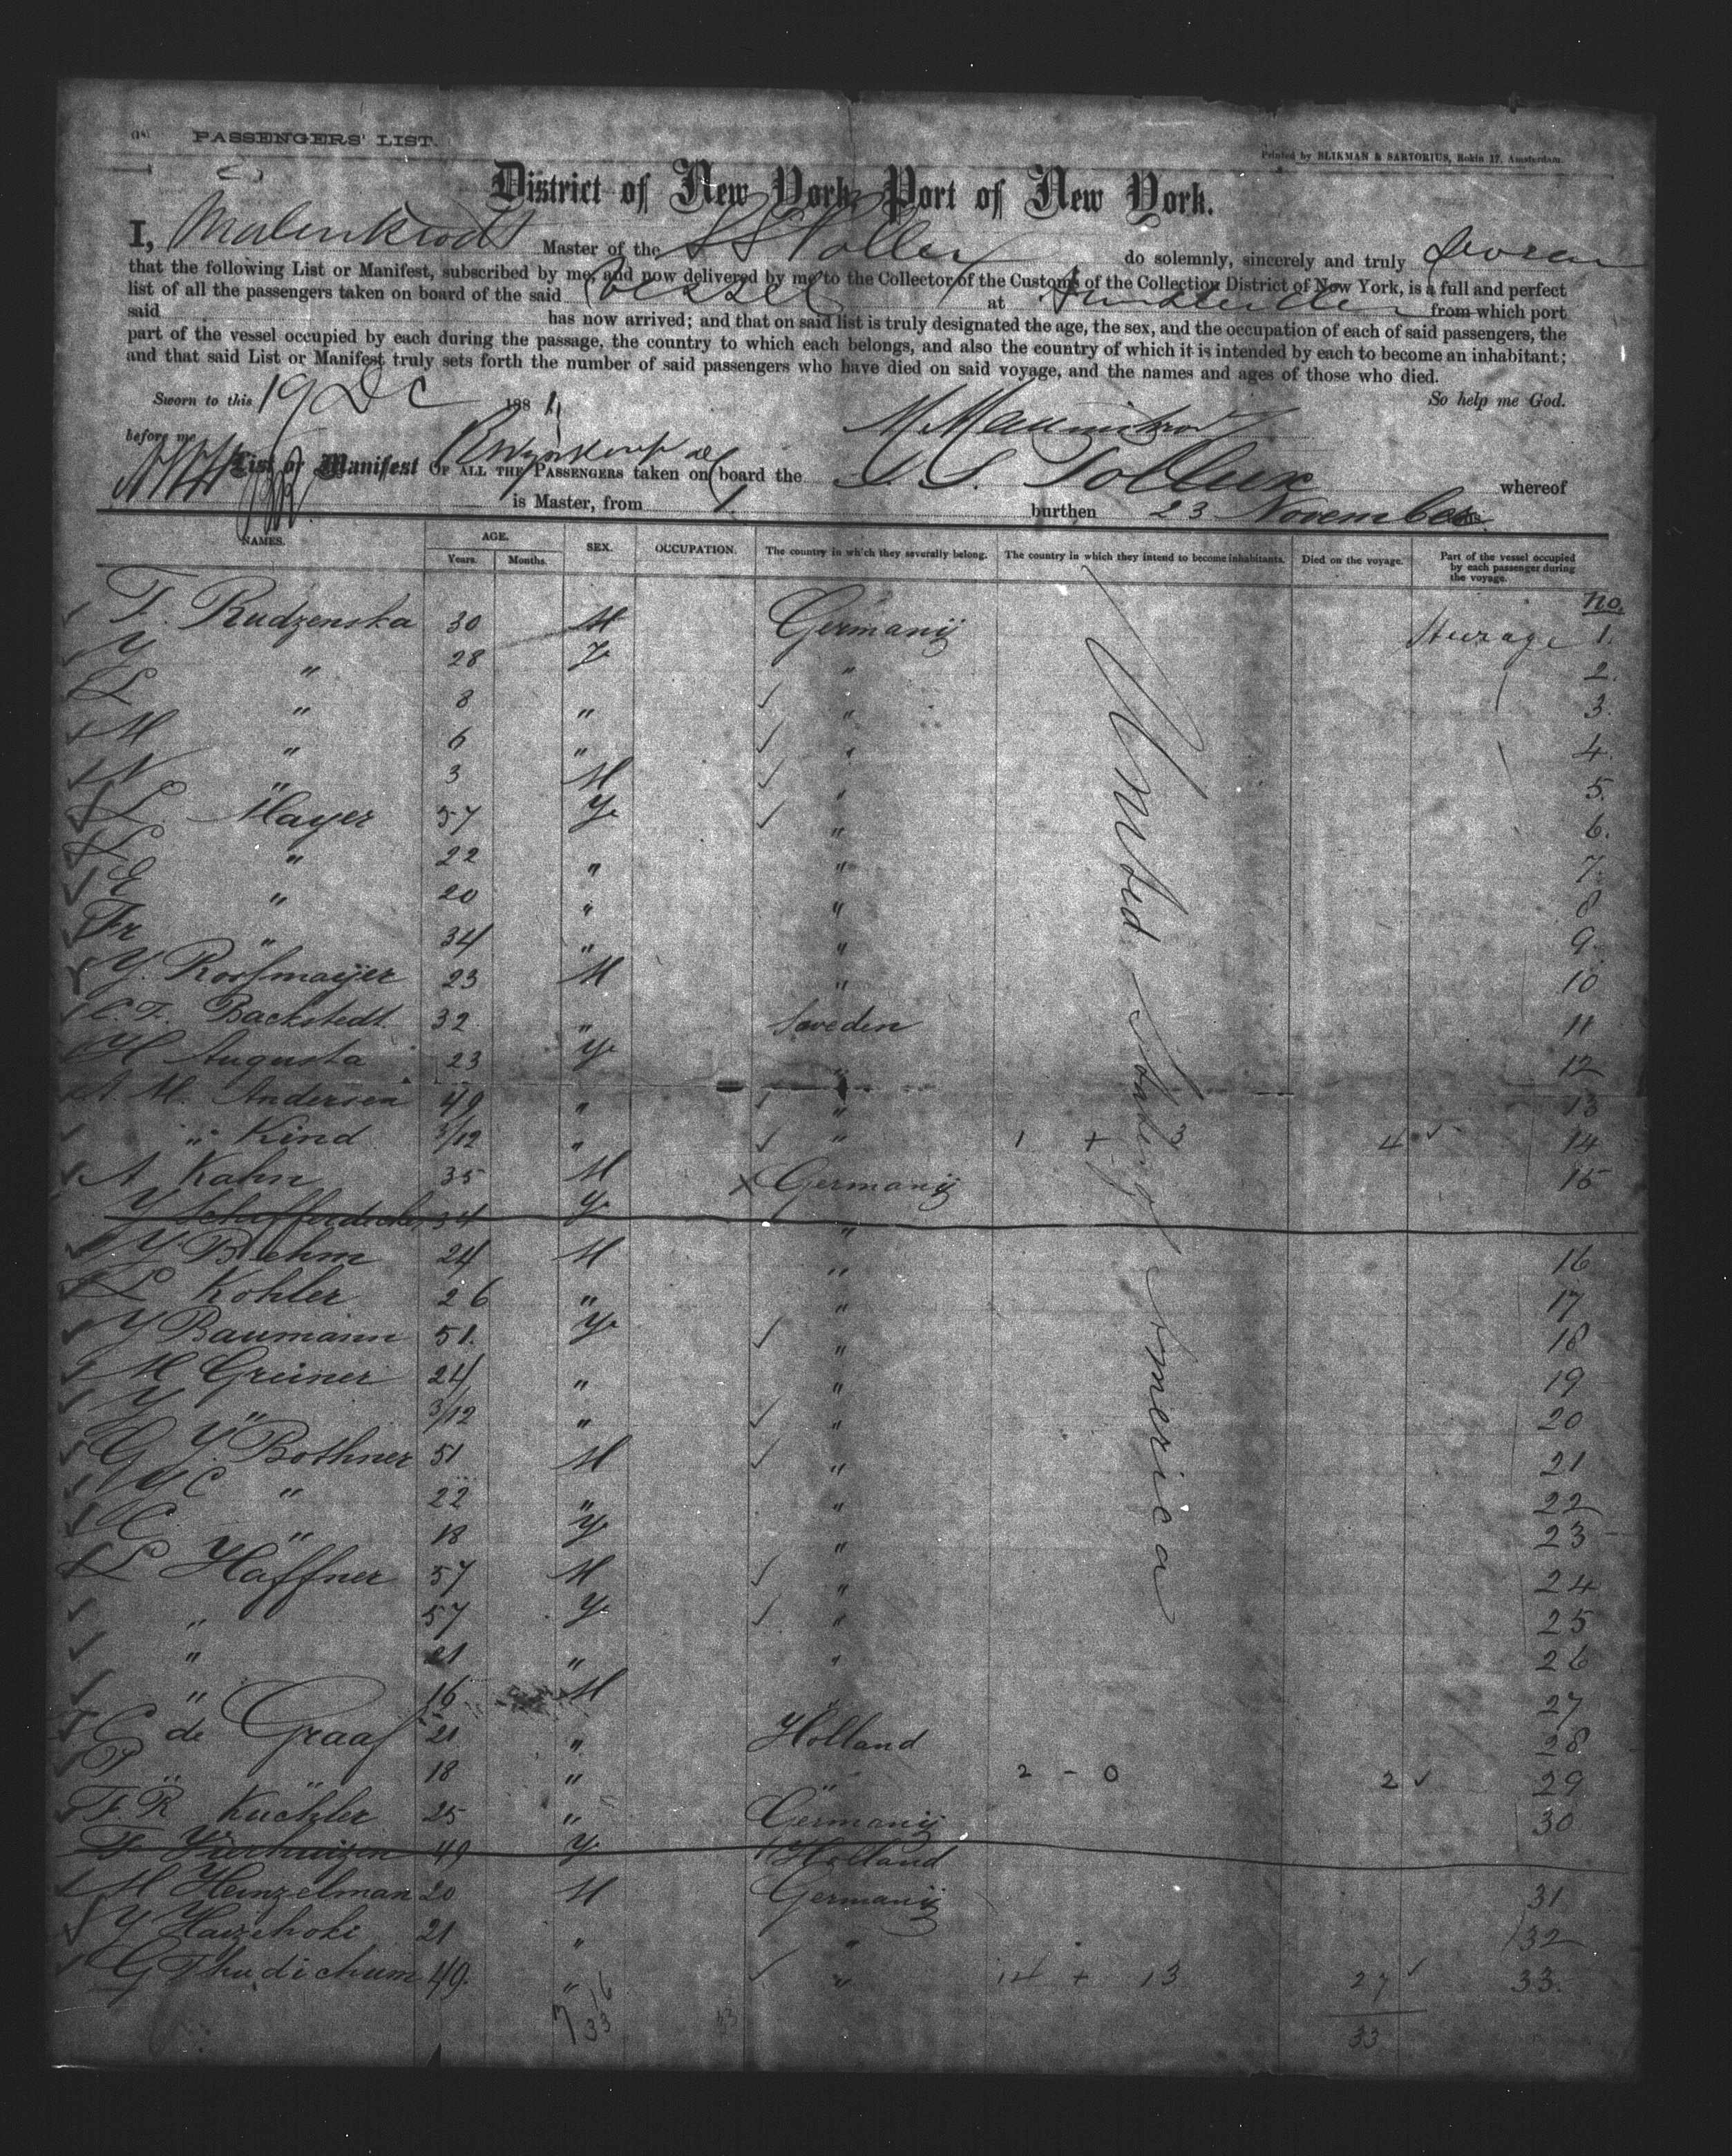 PASSENGERS' LIST.
Printed by BLIKMAN & SARTORIUS, Rokin 17, Amsterdam.
District of New York, Port of New York.
I, Master of the SS do solemnly, sincerely and truly
that the following List or Manifest, subscribed by me, and now delivered by me to the Collector of the Customs of the Collection District of New York, is a full and perfect
list of all the passengers taken on board of the said Vessel at from which port
said has now arrived; and that on said list is truly designated the age, the sex, and the occupation of each of said passengers, the
part of the vessel occupied by each during the passage, the country to which each belongs, and also the country of which it is intended by each to become an inhabitant;
and that said List or Manifest truly sets forth the number of said passengers who have died on said voyage, and the names and ages of those who died.
Sworn to this 19 Dc 188 So help me God.
before me
List or Manifest OF ALL THE PASSENGERS taken on board the S. S. Pollux whereof
is Master, from burthen 23 November
NAMES. AGE. Years. Months. SEX. OCCUPATION. The country in which they severally belong. The country in which they intend to become inhabitants. Died on the voyage. Part of the vessel occupied by each passenger during the voyage.
No.
United States of America
T. Rudzenska 30 M Germanij Sturage 1.
Y " 28 F " 2.
L " 8 " " 3.
M " 6 " " 4.
N " 3 M " 5.
L. Mayer 57 F " 6.
L " 22 " " 7.
E " 20 " " 8
Fr " 34 " " 9.
Y. Roosmaijer 23 M " 10
C. F. Backstedt 32 " Sweden 11
H Augusta 23 F " 12
A. M. Andersen 49 " " 13
" Kind 3/12 " " 1 + 3 4 14
A Kahn 35 M Germanij 15
Y 34 F "
Y Blehm 24 M " 16
L Kohler 26 " " 17
Y Baumann 51. F " 18
M Greiner 24 " " 19
Y " 3/12 " " 20
G Y. Bothner 51 M " 21
Y C " 22 " " 22
C. " 18 F " 23
L Haffner 57 M " 24
" 57 F " 25
" 21 " " 26
" 16 M " 27
C de Graaf 21 " Holland 28
P " " 18 " " 2 - 0 2 29
F. R Kuchler 25 " Germanij 30
F. 49 F Holland
M Heinzelman 20 M Germanij 31
Y 21 " " 32
G Thudichum 49. " " 14 + 13 27 33.
33 33